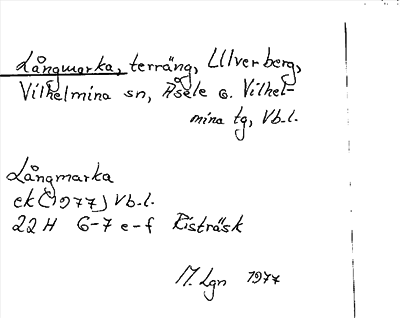 Långmarka, terräng, Ullverberg,
Vilhelmina sn, Åsele o. Vilhel-
mina tg, Vb.l.
Långmarka
ek (1977) Vb.l.
22H 6-7 e-f Risträsk
M. Lgn 1977